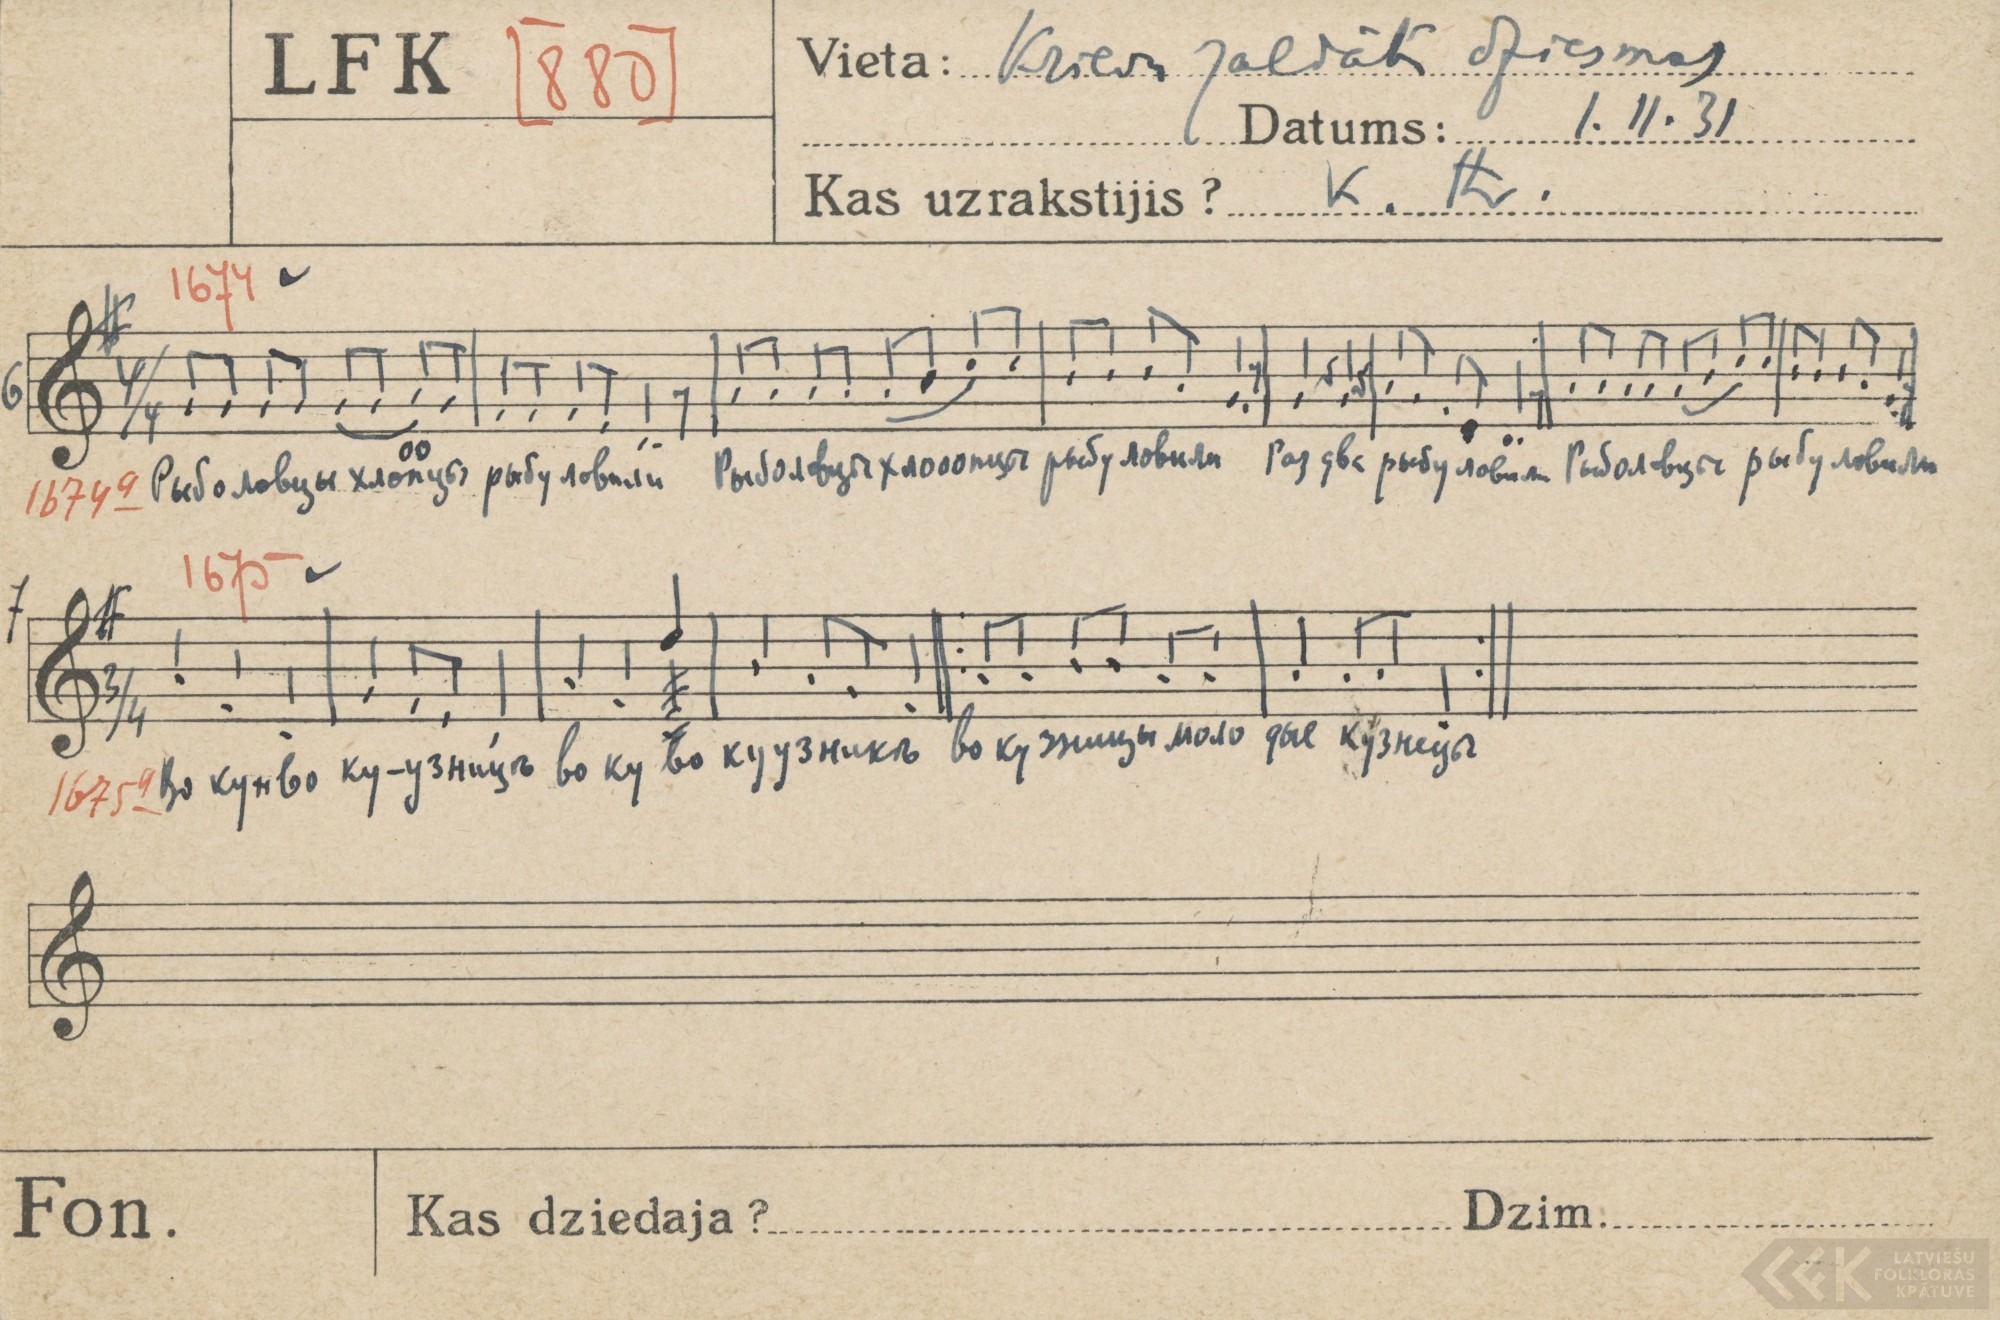 LFK [880]
Vieta: Krievu zaldātu dziesmas
Datums: 1. II. 31
Kas uzrakstijis? K.
1674
6
4/4
1674a Рыболовцы хлопцы рыбу ловили Рыболовцы хлооопцы рыбу ловили Раз два рыбу ловили Рыболовцы рыбу ловили
1675
7
3/4
1675a Во ку во ку-узницъ во ку во куузникъ во кузницы молодые кузнецы
Fon.
Kas dziedaja?
Dzim.
LATVIEŠU
FOLKLORAS
KRĀTUVE